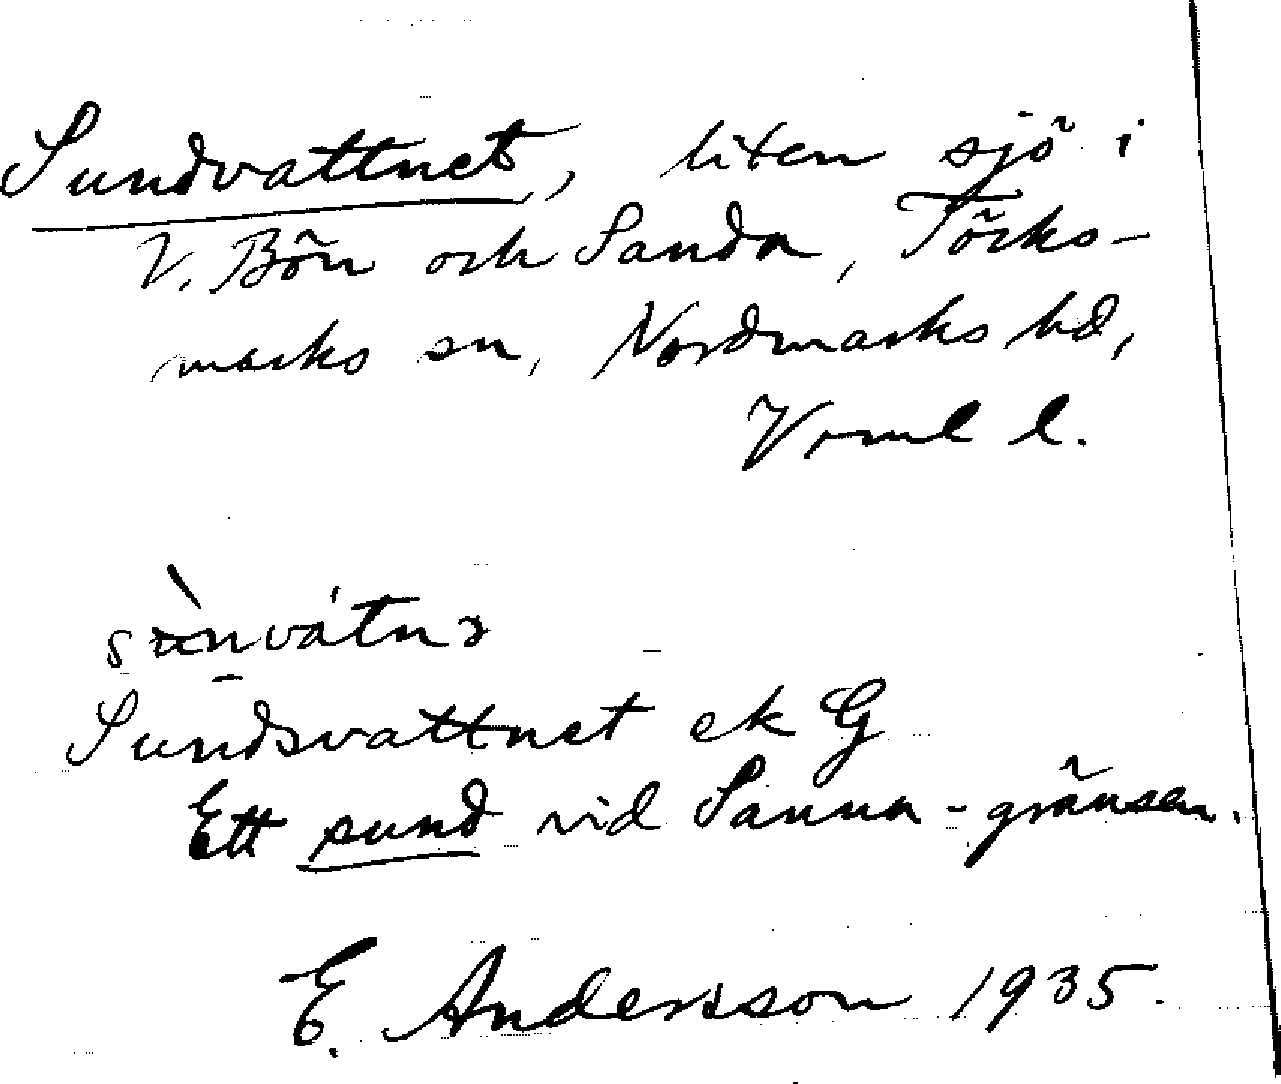 Sundvattnet, liten sjö i
V. Bön och Sanda, Töcks-
marks sn, Nordmarks hd,
Vrml l.
Sundsvattnet ek G
Ett sund vid Sanna-gränsen.
E. Andersson 1935.